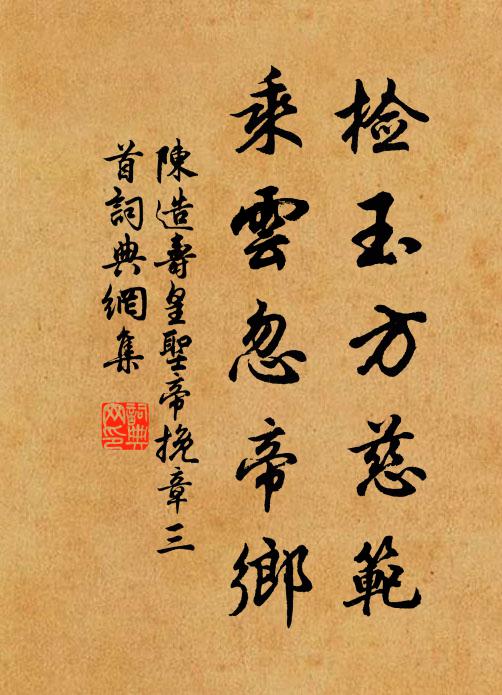 检玉方慈範
乘雲忽帝鄉
陳造壽皇聖帝挽章三
首詞典網集
詞典
网印